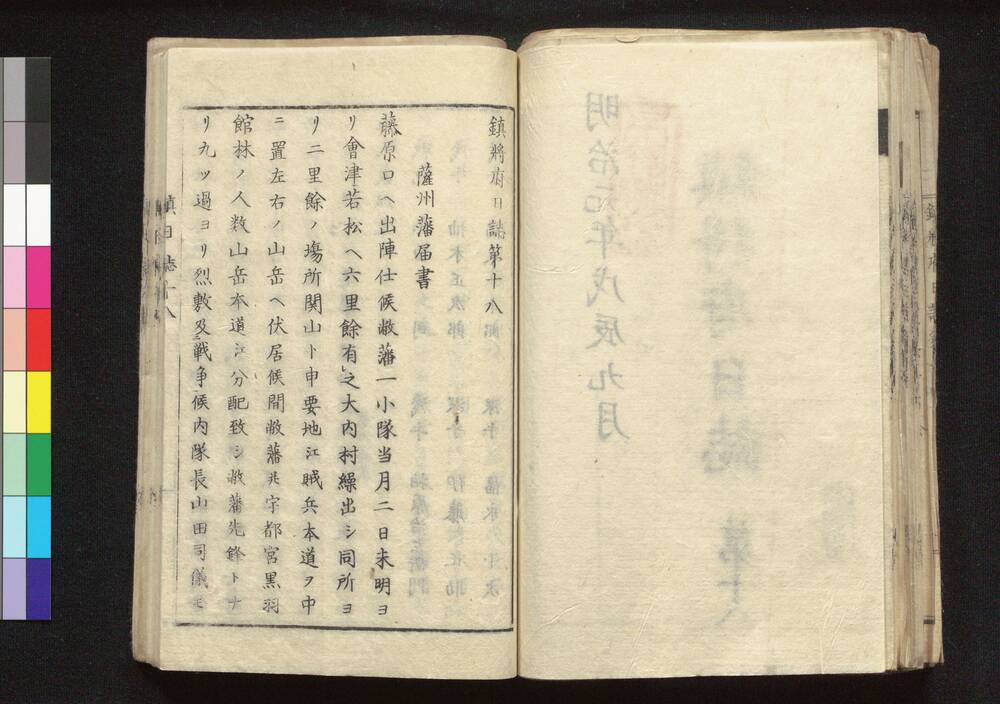 鎮將府日誌第十八
薩州藩届書
藤原口へ出陣仕候敝藩一小隊当月二日未明ヨ
リ會津若松へ六里餘有之大内村繰出シ同所ヨ
リ二里餘ノ塲所関山ト申要地江賊兵本道ヲ中
ニ置左右ノ山岳へ伏居候間敝藩共宇都宮黒羽
館林ノ人数山岳本道江分配致シ敝藩先鋒ト十
リ九ツ過ヨリ烈敷及戦争候内隊長山田司儀モ
鎮日誌十八
明治元年戊辰九月